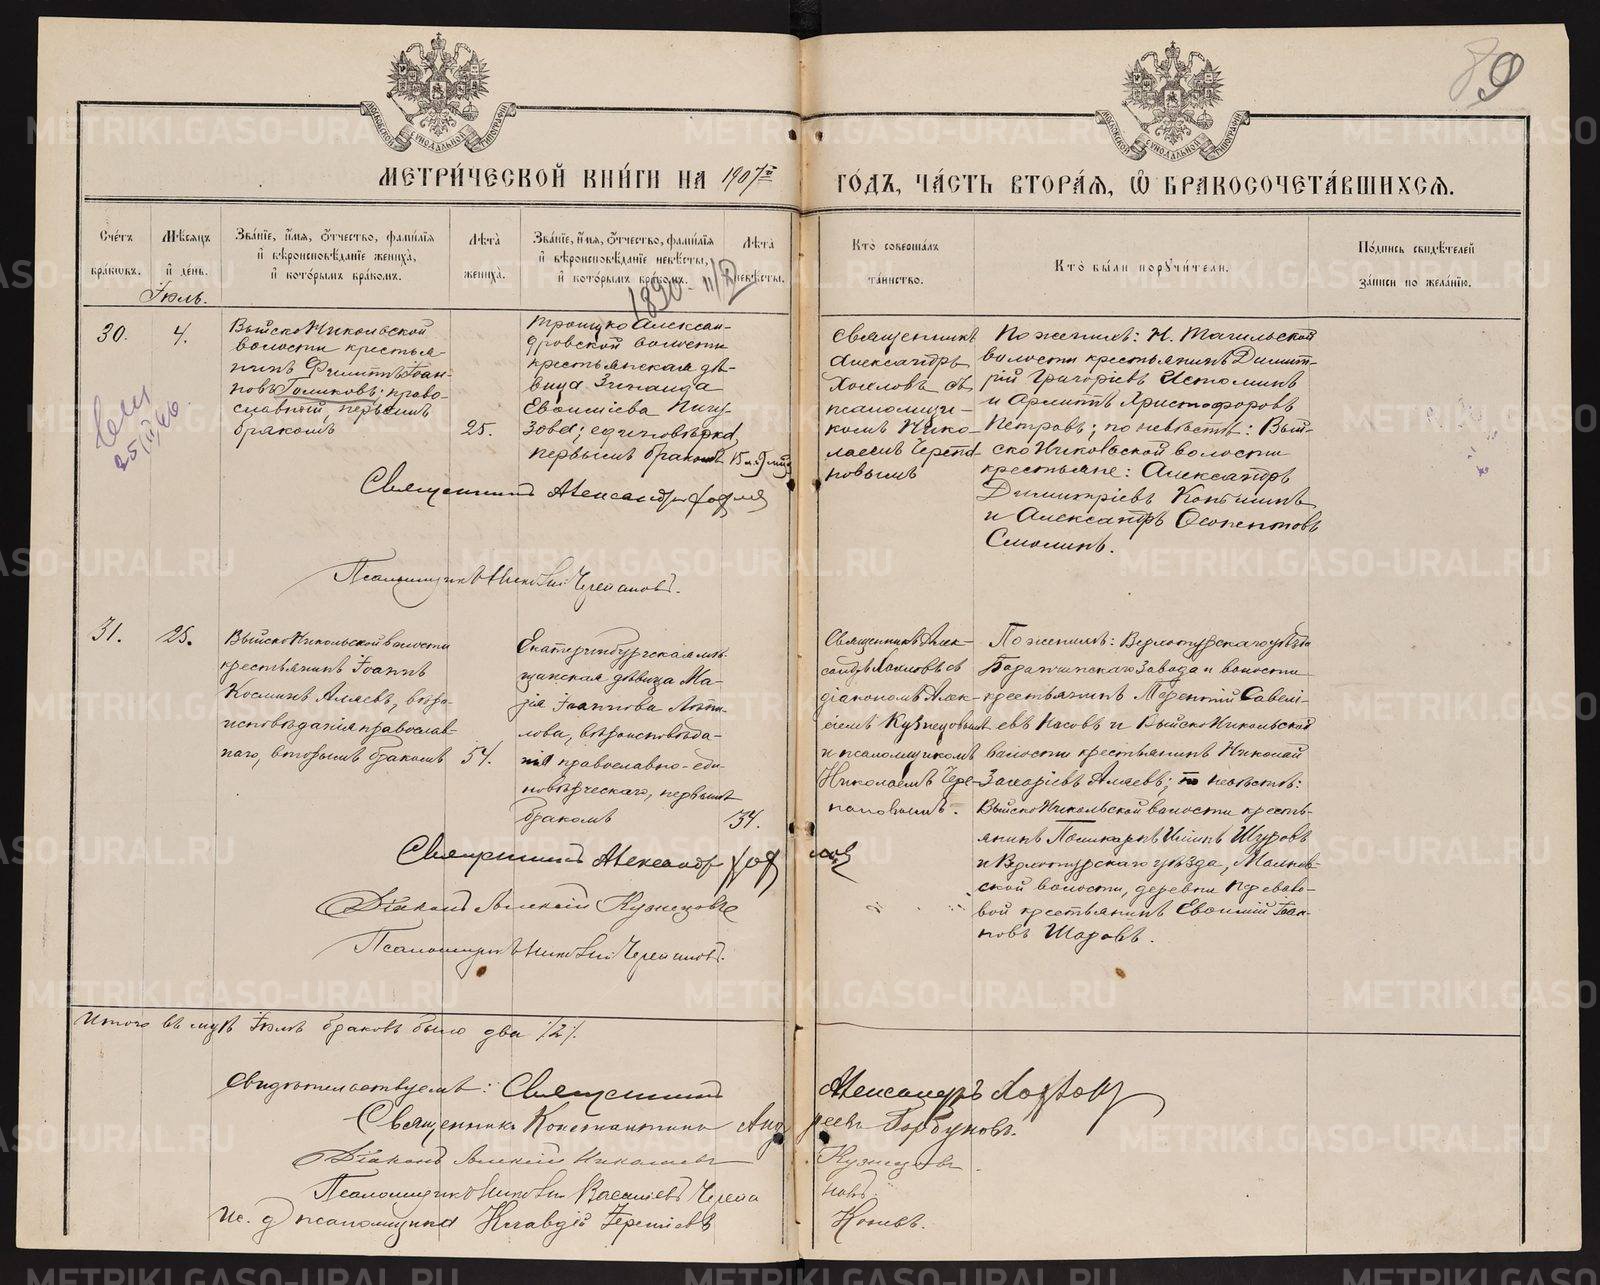 89
МЕТРИ́ЧЕСКОЙ КНИ́ГИ НА 1907й ГО́ДЪ, ЧА́СТЬ ВТОРА́Я, Ѡ҆ БРАКОСОЧЕТА́ВШИХСЯ.
Сче́тъ бра́ковъ.
Мѣ́сяцъ и҆ де́нь.
Зва́нїе, и҆́мя, ѻ҆́тчество, фами́лїя и҆ вѣроисповѣ́данїе жениха̀, и҆ кото́рымъ бра́комъ.
Лѣ́та жениха̀.
Зва́нїе, и҆́мя, ѻ҆́тчество, фами́лїя и҆ вѣроисповѣ́данїе невѣ́сты, и҆ кото́рымъ бра́комъ.
Лѣ́та невѣ́сты.
Кто̀ соверша́лъ та́инство.
Кто̀ бы́ли порꙋчи́тели.
По́дпись свидѣ́телей за́писи по жела́нїю.
Іюль.
1890
30.
4.
Выйско Никольской
волости крестья
нинъ Филиппъ Іоан-
новъ Голиковъ; право-
славный, первымъ
бракомъ
25.
Троицко Алексан-
дровской волости
крестьянская дѣ-
вица Зинаида
Евѳиміева Пичу-
гова; единовѣрка,
первымъ бракомъ
Священникъ
Александръ
Хохловъ съ
псаломщи-
комъ Нико-
лаемъ Черепа-
новымъ
По женихѣ: Н. Тагильской
волости крестьянинъ Димит-
рій Григоріевъ Истоминъ
Христофоровъ
Петровъ; по невѣстѣ: Вый-
ско Никольской волости
крестьяне: Александръ
Димитріевъ
и Александръ
Смолинъ.
25/II 66
Священникъ Александръ Хохловъ
Псаломщикъ Николай Черепановъ.
31.
25.
Выйско Никольской волости
крестьянинъ Іоаннъ
Косминъ Аляевъ, вѣро-
исповѣданія православ-
наго, вторымъ бракомъ
54.
Екатеринбургская мѣ-
щанская дѣвица Ма-
рія Іоаннова
лова, вѣроисповѣда-
нія православно-еди-
новѣрческаго, первымъ
бракомъ
34.
Священникъ Алек-
сандръ Хохловъ съ
діакономъ Алек-
сіемъ Кузнецовымъ
и псаломщикомъ
Николаемъ Чере-
пановымъ.
По женихѣ: Верхотурскаго уѣзда
Баранчинскаго завода и волости
крестьянинъ Терентій Савелі-
евъ Насовъ и Выйско Никольской
волости крестьянинъ Николай
Захаріевъ Аляевъ; по невѣстѣ:
Выйско Никольской волости кресть-
янинъ Поликарпъ Ильинъ Шуровъ
и Верхотурскаго уѣзда,
ской волости, деревни
вой крестьянинъ Евѳимій Іоан-
новъ Шаровъ.
Священникъ Александръ Хохловъ
Діаконъ Алексій Кузнецовъ
Псаломщикъ Николай Черепановъ.
Итого въ мцѣ Іюлѣ браковъ было два /2/.
Свидѣтельствуемъ: Священникъ Александръ Хохловъ
Священникъ Константинъ Андреевъ Горбуновъ.
Діаконъ Алексій Николаевъ Кузнецовъ.
Псаломщикъ Николай Васильевъ Черепановъ.
Ис. д. псаломщика Клавдій Іереміевъ
METRIKI.GASO-URAL.RU